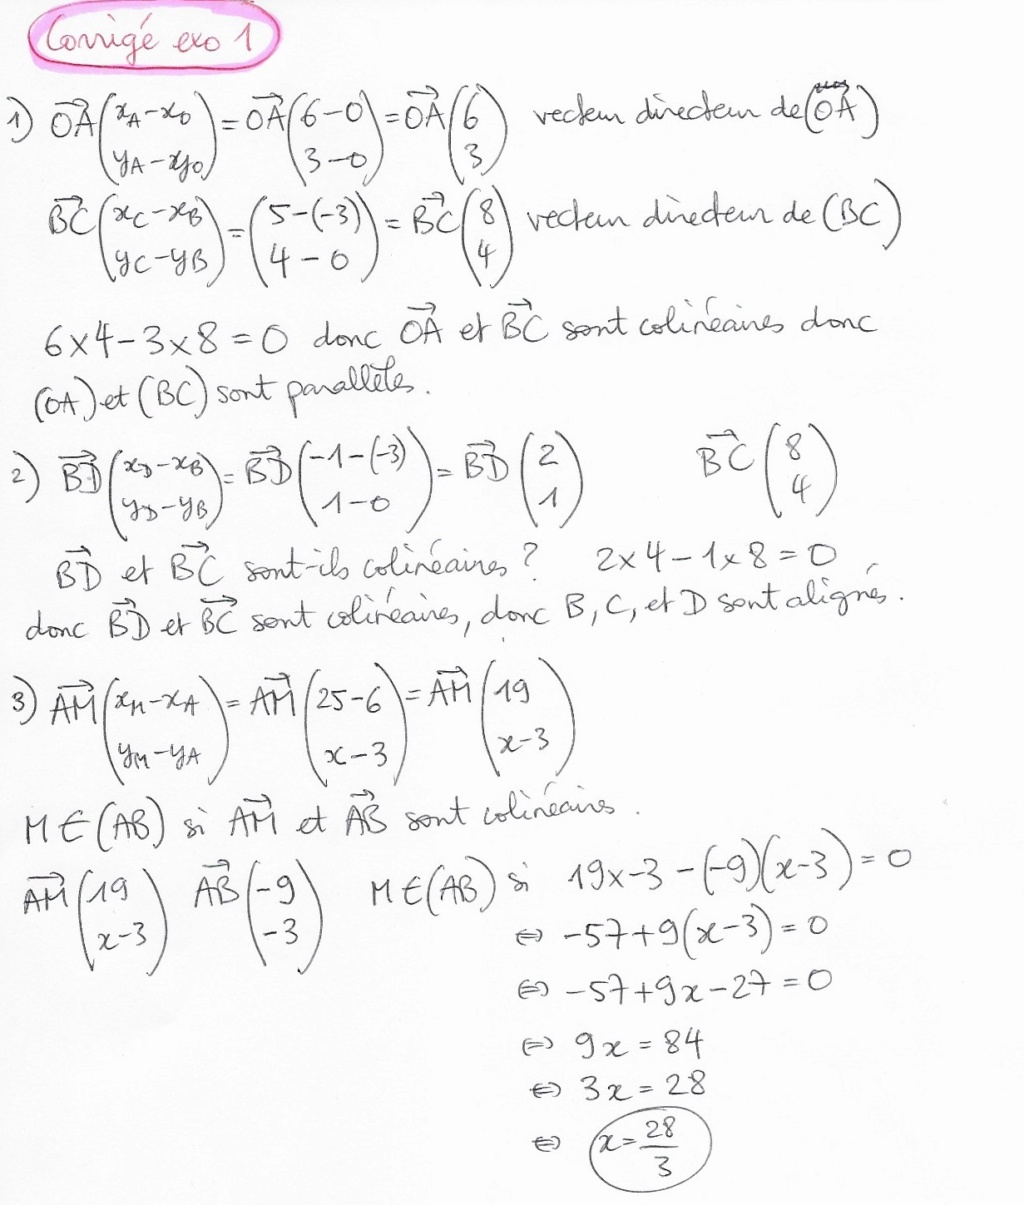 Corrigé exo 1
1) OA⃗ (xA-xO ; yA-yO) = OA⃗ (6-0 ; 3-0) = OA⃗ (6 ; 3) vecteur directeur de (OA)
BC⃗ (xC-xB ; yC-yB) = (5-(-3) ; 4-0) = BC⃗ (8 ; 4) vecteur directeur de (BC)
6×4-3×8=0 donc OA⃗ et BC⃗ sont colinéaires donc
(OA) et (BC) sont parallèles.
2) BD⃗ (xD-xB ; yD-yB) = BD⃗ (-1-(-3) ; 1-0) = BD⃗ (2 ; 1) BC⃗ (8 ; 4)
BD⃗ et BC⃗ sont-ils colinéaires ? 2×4-1×8=0
donc BD⃗ et BC⃗ sont colinéaires, donc B, C, et D sont alignés.
3) AM⃗ (xM-xA ; yM-yA) = AM⃗ (25-6 ; x-3) = AM⃗ (19 ; x-3)
M∈(AB) si AM⃗ et AB⃗ sont colinéaires.
AM⃗ (19 ; x-3) AB⃗ (-9 ; -3) M∈(AB) si 19×-3-(-9)(x-3)=0
⇔ -57+9(x-3)=0
⇔ -57+9x-27=0
⇔ 9x=84
⇔ 3x=28
⇔ x=28/3